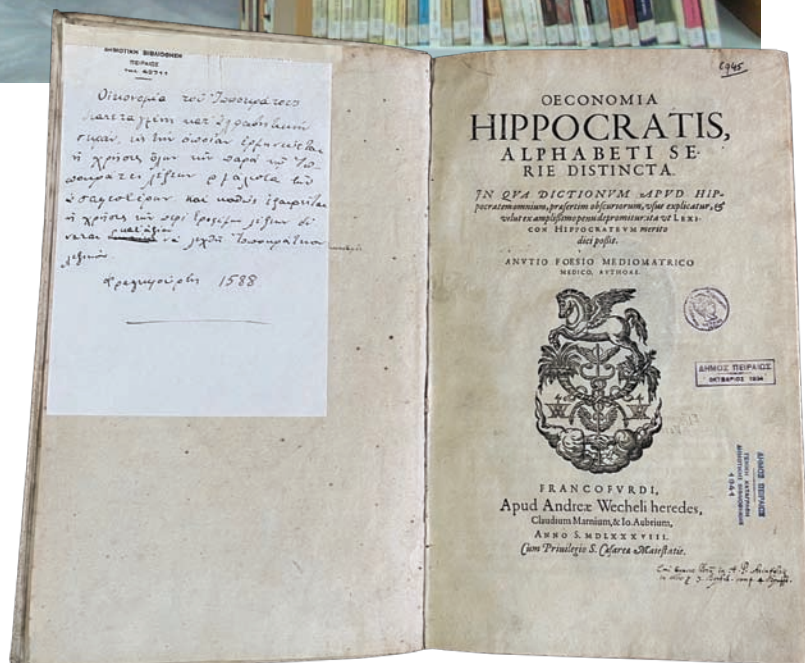 ΔΗΜΟΤΙΚΗ ΒΙΒΛΙΟΘΗΚΗ
ΠΕΙΡΑΙΩΣ
Οἰκονομία τοῦ Ἱπποκράτους
διατεταγμένη κατ' ἀλφαβητικὴν
σειράν, εἰς τὴν ὁποίαν ἑρμηνεύεται
ἡ χρῆσις ὅλων τῶν παρὰ τῷ Ἱπ-
ποκράτει λέξεων μάλιστα τῶν
καὶ καθὼς
ἡ χρῆσις τῶν λέξεων δύ
ναται νὰ λεχθῇ Ἱπποκράτειον
λεξικόν.
1588
OECONOMIA
HIPPOCRATIS,
ALPHABETI SE-
RIE DISTINCTA.
IN QVA DICTIONVM APVD HIP-
pocratem omnium, præsertim obscuriorum, vsus explicatur, &
velut ex amplissimo penu depromitur: ita vt LEXI-
CON HIPPOCRATEVM merito
dici possit.
ANVTIO FOESIO MEDIOMATRICO
MEDICO, AVTHORE.
ΔΗΜΟΣ ΠΕΙΡΑΙΩΣ
ΟΚΤΩΒΡΙΟΣ 1994
ΔΗΜΟΣ ΠΕΙΡΑΙΩΣ
ΓΕΝΙΚΗ ΚΑΤΑΓΡΑΦΗ
ΔΗΜΟΤΙΚΗΣ ΒΙΒΛΙΟΘΗΚΗΣ
FRANCOFVRDI,
Apud Andreæ Wecheli heredes,
Claudium Marnium, & Io. Aubrium,
ANNO S. MDLXXXVIII.
Cum Priuilegio S. Cæsareæ Maiestatis.